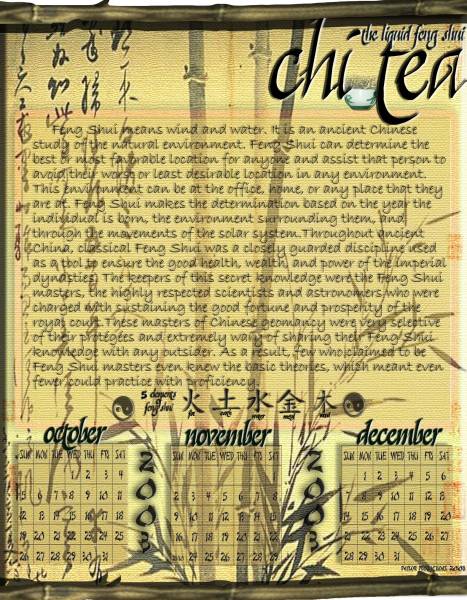 the liquid feng shui
chi tea
Feng Shui means wind and water. It is an ancient Chinese
study of the natural environment. Feng Shui can determine the
best or most favorable location for anyone and assist that person to
avoid they worst or least desirable location in any environment.
This environment can be at the office, home, or any place that they
are at. Feng Shui makes the determination based on the year the
individual is born, the environment surrounding them, and
through the movements of the solar system.Throughout ancient
China, classical Feng Shui was a closely guarded discipline used
as a tool to ensure the good health, wealth, and power of the imperial
dynasties. The keepers of this secret knowledge were the Feng Shui
masters, the highly respected scientists and astronomers who were
charged with sustaining the good fortune and prosperity of the
royal court.These masters of Chinese geomancy were very selective
of their protégées and extremely wary of sharing their Feng Shui
knowledge with any outsider. As a result, few who claimed to be
Feng Shui masters even knew the basic theories, which meant even
fewer could practice with proficiency.
5 elements
of
feng shui
火 土 水 金 木
fire earth water metal wood
october
SUN MON TUE WED THU FRI SAT
1 2 3 4
5 6 7 8 9 10 11
12 13 14 15 16 17 18
19 20 21 22 23 24 25
26 27 28 29 30 31
2003
november
SUN MON TUE WED THU FRI SAT
1
2 3 4 5 6 7 8
9 10 11 12 13 14 15
16 17 18 19 20 21 22
23 24 25 26 27 28 29
2003
december
SUN MON TUE WED THU FRI SAT
1 2 3 4 5 6
7 8 9 10 11 12 13
14 15 16 17 18 19 20
21 22 23 24 25 26 27
28 29 30 31